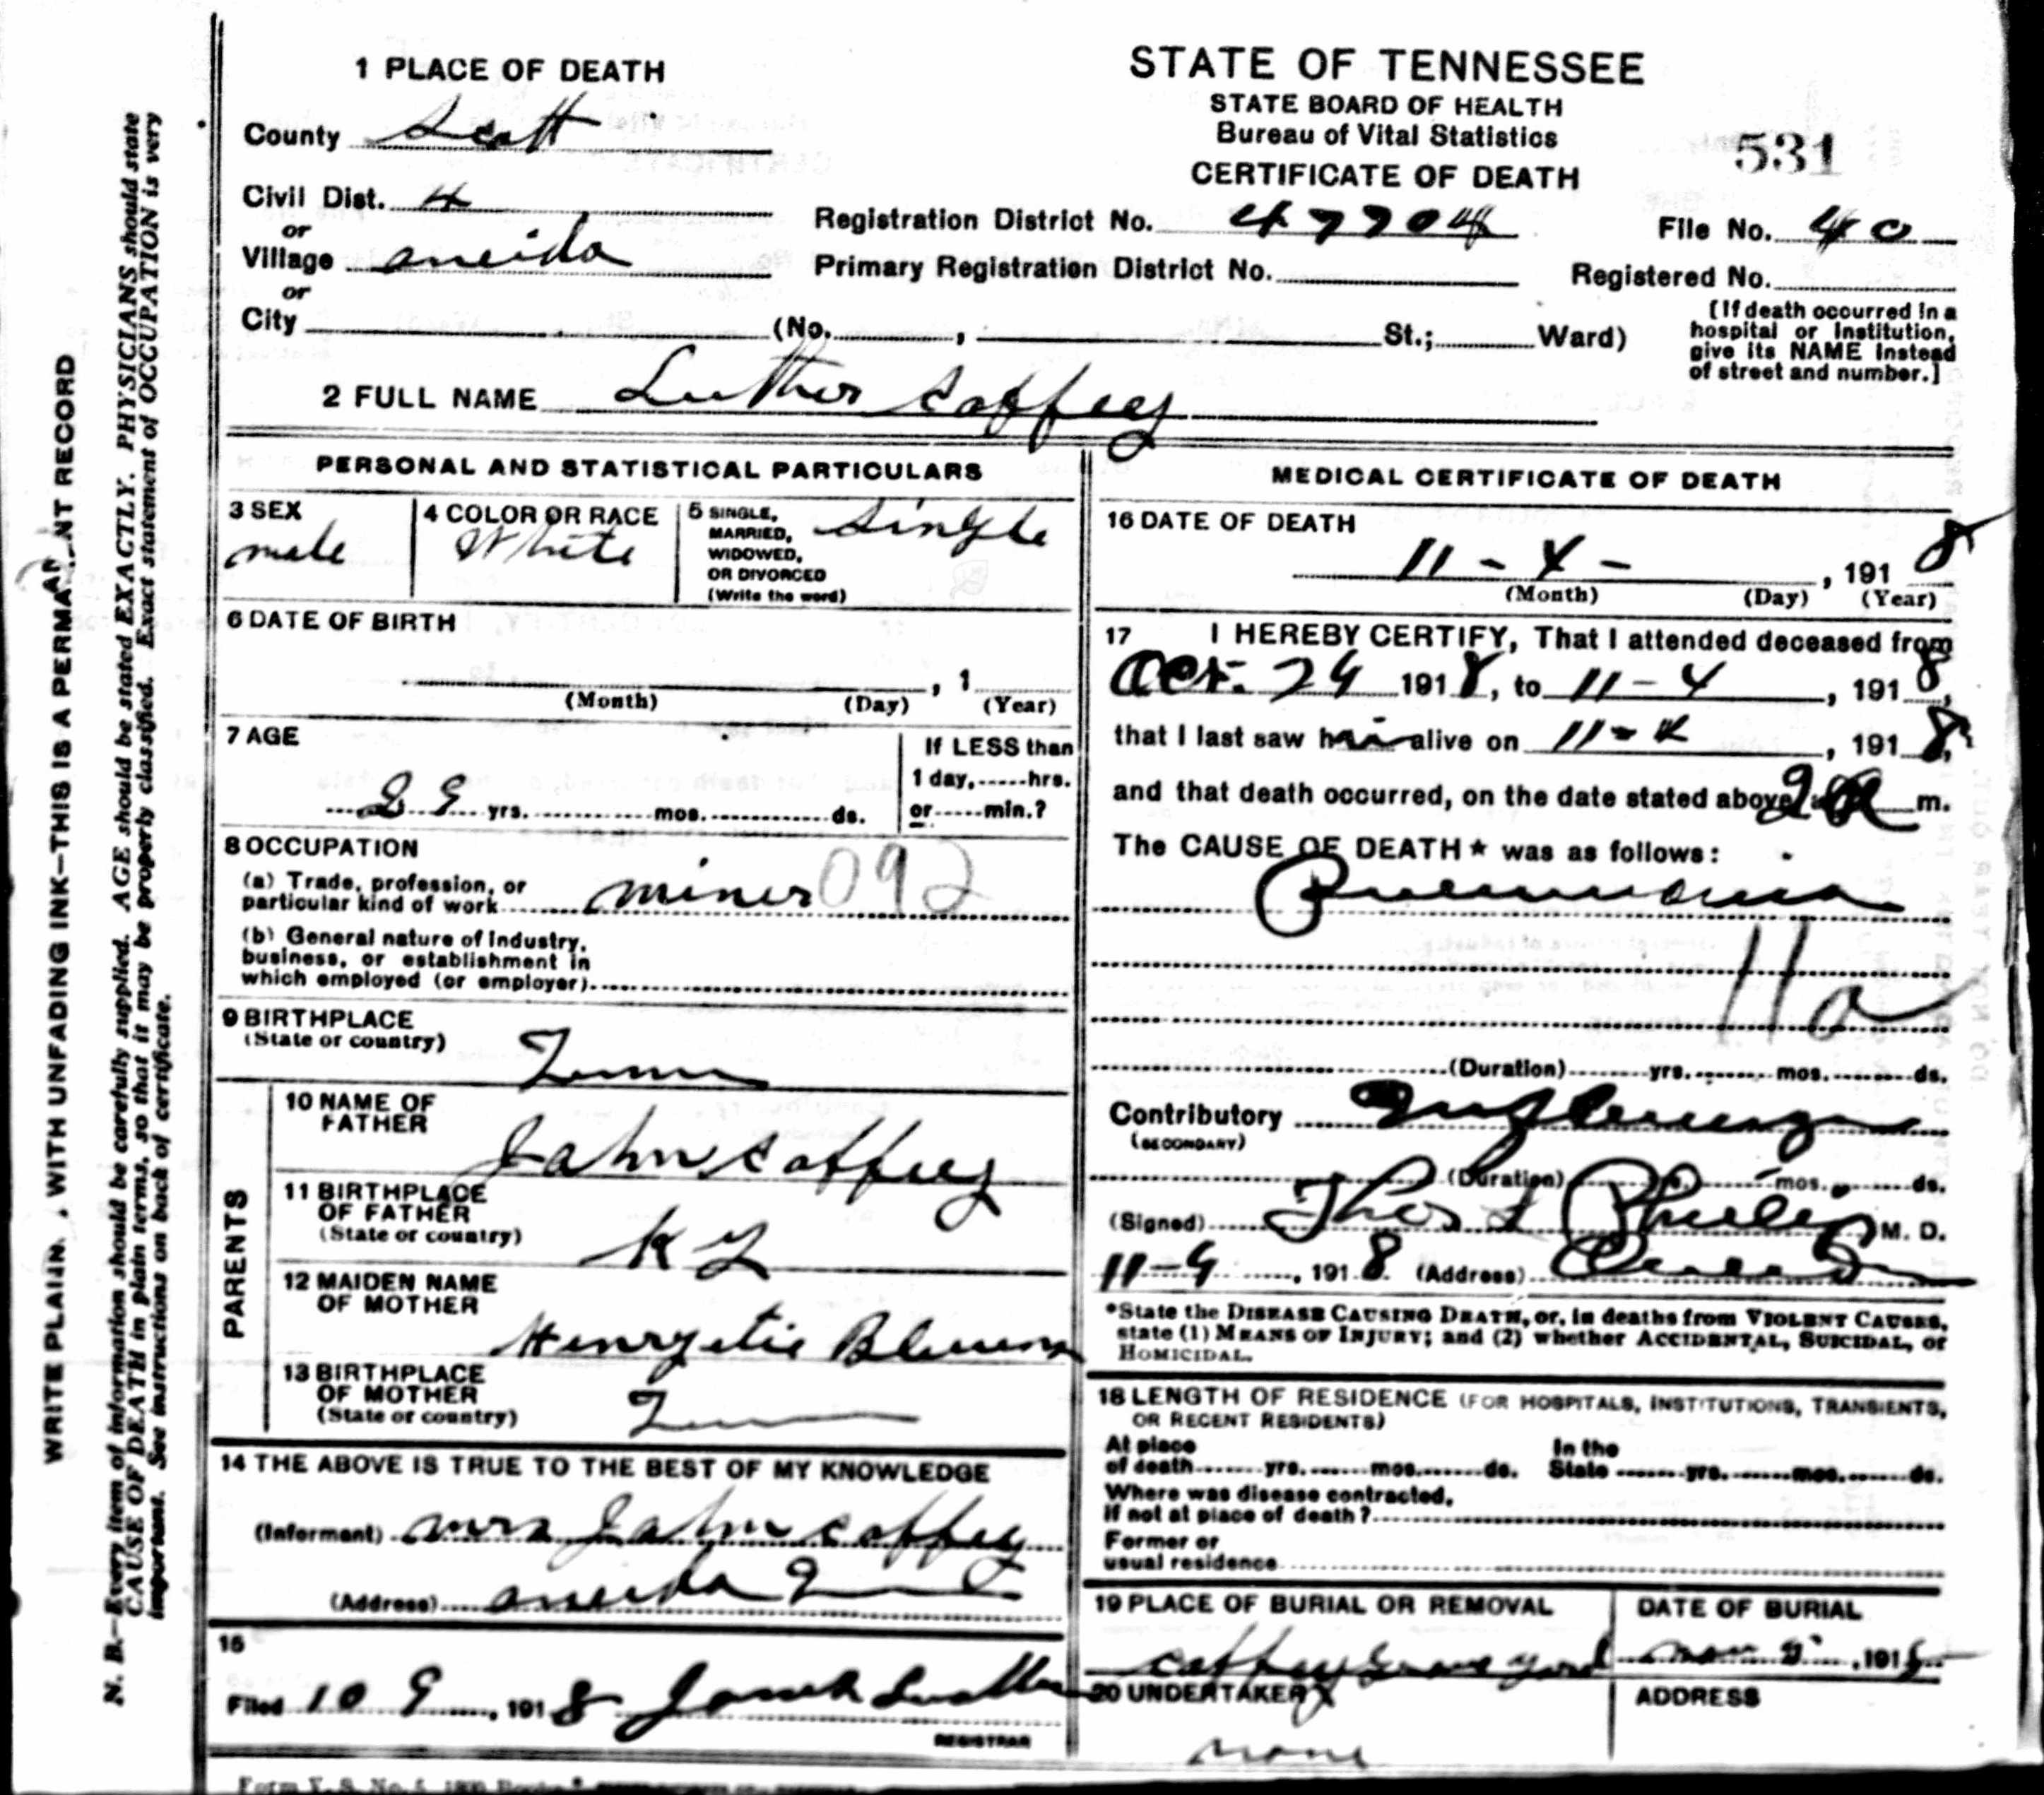 1 PLACE OF DEATH
County Scott
Civil Dist. 4
or
Village oneida
or
City (No. , St.; Ward)
STATE OF TENNESSEE
STATE BOARD OF HEALTH
Bureau of Vital Statistics
CERTIFICATE OF DEATH
531
Registration District No. 47704
File No. 40
Primary Registration District No.
Registered No.
[If death occurred in a
hospital or institution,
give its NAME instead
of street and number.]
2 FULL NAME Luther Coffey
PERSONAL AND STATISTICAL PARTICULARS
3 SEX
male
4 COLOR OR RACE
White
5 SINGLE,
MARRIED,
WIDOWED,
OR DIVORCED
(Write the word)
Single
6 DATE OF BIRTH
, 1
(Month) (Day) (Year)
7 AGE
29 yrs. mos. ds.
If LESS than
1 day, hrs.
or min.?
8 OCCUPATION
(a) Trade, profession, or
particular kind of work miner 092
(b) General nature of industry,
business, or establishment in
which employed (or employer)
9 BIRTHPLACE
(State or country)
Tenn
PARENTS
10 NAME OF
FATHER
John Coffey
11 BIRTHPLACE
OF FATHER
(State or country)
Ky
12 MAIDEN NAME
OF MOTHER
Henryetie
13 BIRTHPLACE
OF MOTHER
(State or country)
Tenn
14 THE ABOVE IS TRUE TO THE BEST OF MY KNOWLEDGE
(Informant) Mrs John Coffey
(Address) oneida Tenn
15
Filed 10 9, 1918
REGISTRAR
MEDICAL CERTIFICATE OF DEATH
16 DATE OF DEATH
11 - 4 - , 1918
(Month) (Day) (Year)
17 I HEREBY CERTIFY, That I attended deceased from
Oct. 24 1918, to 11-4, 1918,
that I last saw him alive on 11-4, 1918,
and that death occurred, on the date stated above, at 2 a m.
The CAUSE OF DEATH* was as follows:
Pneumonia
11a
(Duration) yrs. mos. ds.
Contributory Influenza
(SECONDARY)
(Duration) yrs. mos. ds.
(Signed) Thos L Phillips M. D.
11-9, 1918 (Address) Oneida
*State the DISEASE CAUSING DEATH, or, in deaths from VIOLENT CAUSES,
state (1) MEANS OF INJURY; and (2) whether ACCIDENTAL, SUICIDAL, or
HOMICIDAL.
18 LENGTH OF RESIDENCE (FOR HOSPITALS, INSTITUTIONS, TRANSIENTS,
OR RECENT RESIDENTS)
At place
of death yrs. mos. ds.
In the
State yrs. mos. ds.
Where was disease contracted,
if not at place of death?
Former or
usual residence
19 PLACE OF BURIAL OR REMOVAL
Coffey Grave yard
DATE OF BURIAL
nov 5, 1918
20 UNDERTAKER
none
ADDRESS
WRITE PLAIN, WITH UNFADING INK—THIS IS A PERMANENT RECORD
N. B.—Every item of information should be carefully supplied. AGE should be stated EXACTLY. PHYSICIANS should state
CAUSE OF DEATH in plain terms, so that it may be properly classified. Exact statement of OCCUPATION is very
important. See instructions on back of certificate.